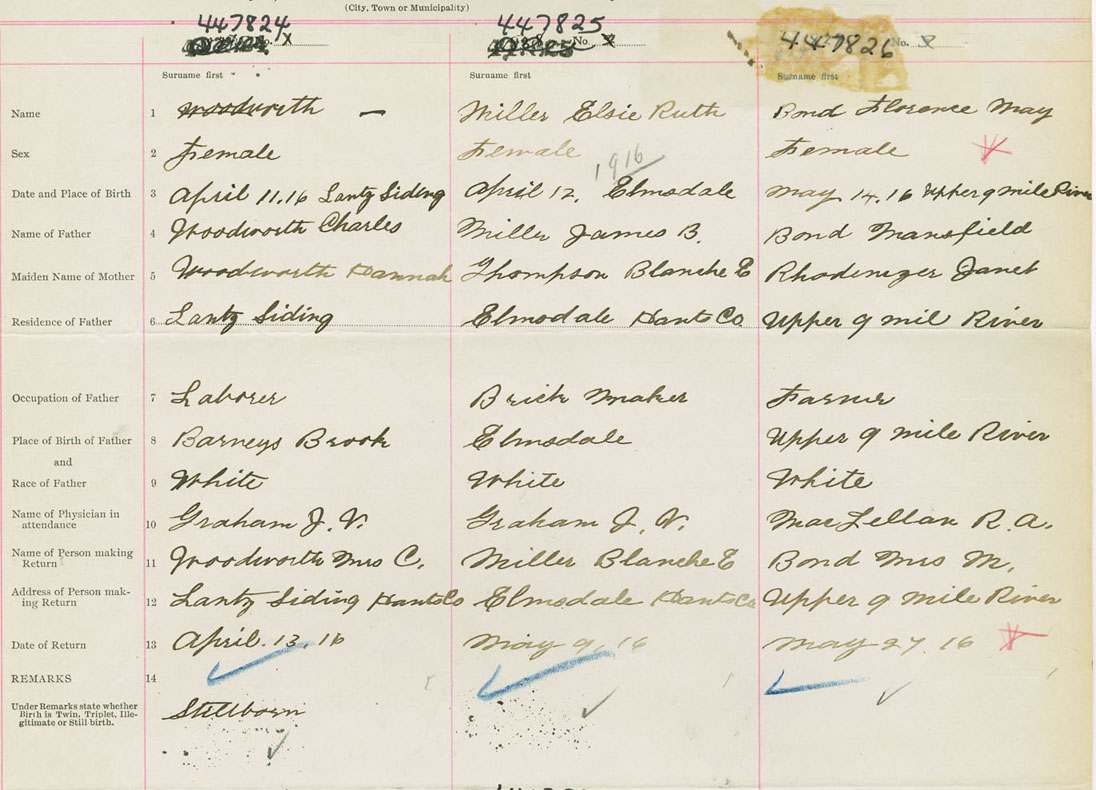 (City, Town or Municipality)
447824 447825 447826
No. X No. X No. X
Surname first Surname first Surname first
Name 1 Woodworth — Miller Elsie Ruth Bond Florence May
Sex 2 Female Female Female
1916
Date and Place of Birth 3 April 11.16 Lantz Siding April 12, Elmsdale May 14.16 Upper 9 mile River
Name of Father 4 Woodworth Charles Miller James B. Bond Mansfield
Maiden Name of Mother 5 Woodworth Hannah Thompson Blanche E Rhodeniger Janet
Residence of Father 6 Lantz Siding Elmsdale Hants Co. Upper 9 mil River
Occupation of Father 7 Laborer Brick maker Farmer
Place of Birth of Father 8 Barneys Brook Elmsdale Upper 9 mile River
and
Race of Father 9 White White White
Name of Physician in
attendance 10 Graham J. V. Graham J. V. MacLellan R. A.
Name of Person making
Return 11 Woodworth Mrs C. Miller Blanche E Bond Mrs M.
Address of Person mak-
ing Return 12 Lantz Siding Hants Co Elmsdale Hants Co Upper 9 mile River
Date of Return 13 April. 13, 16 May 9, 16 May 27. 16
REMARKS 14
Under Remarks state whether
Birth is Twin, Triplet, Ille-
gitimate or Still birth.
Stillborn